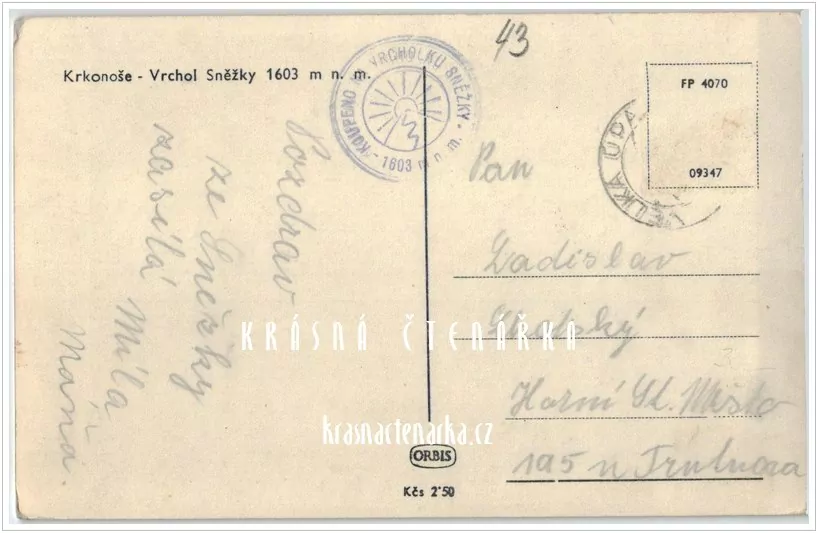 43
Krkonoše - Vrchol Sněžky 1603 m n. m.
KOUPENO NA VRCHOLKU SNĚŽKY
- 1603 m n. m. -
FP 4070
09347
VELKÁ ÚPA
Pozdrav
ze Sněžky
zasílá Míla
Máňa.
Pan
Ladislav
Horní St. Město
195 u Trutnova
KRÁSNÁ ČTENÁŘKA
krasnactenarka.cz
ORBIS
Kčs 2·50